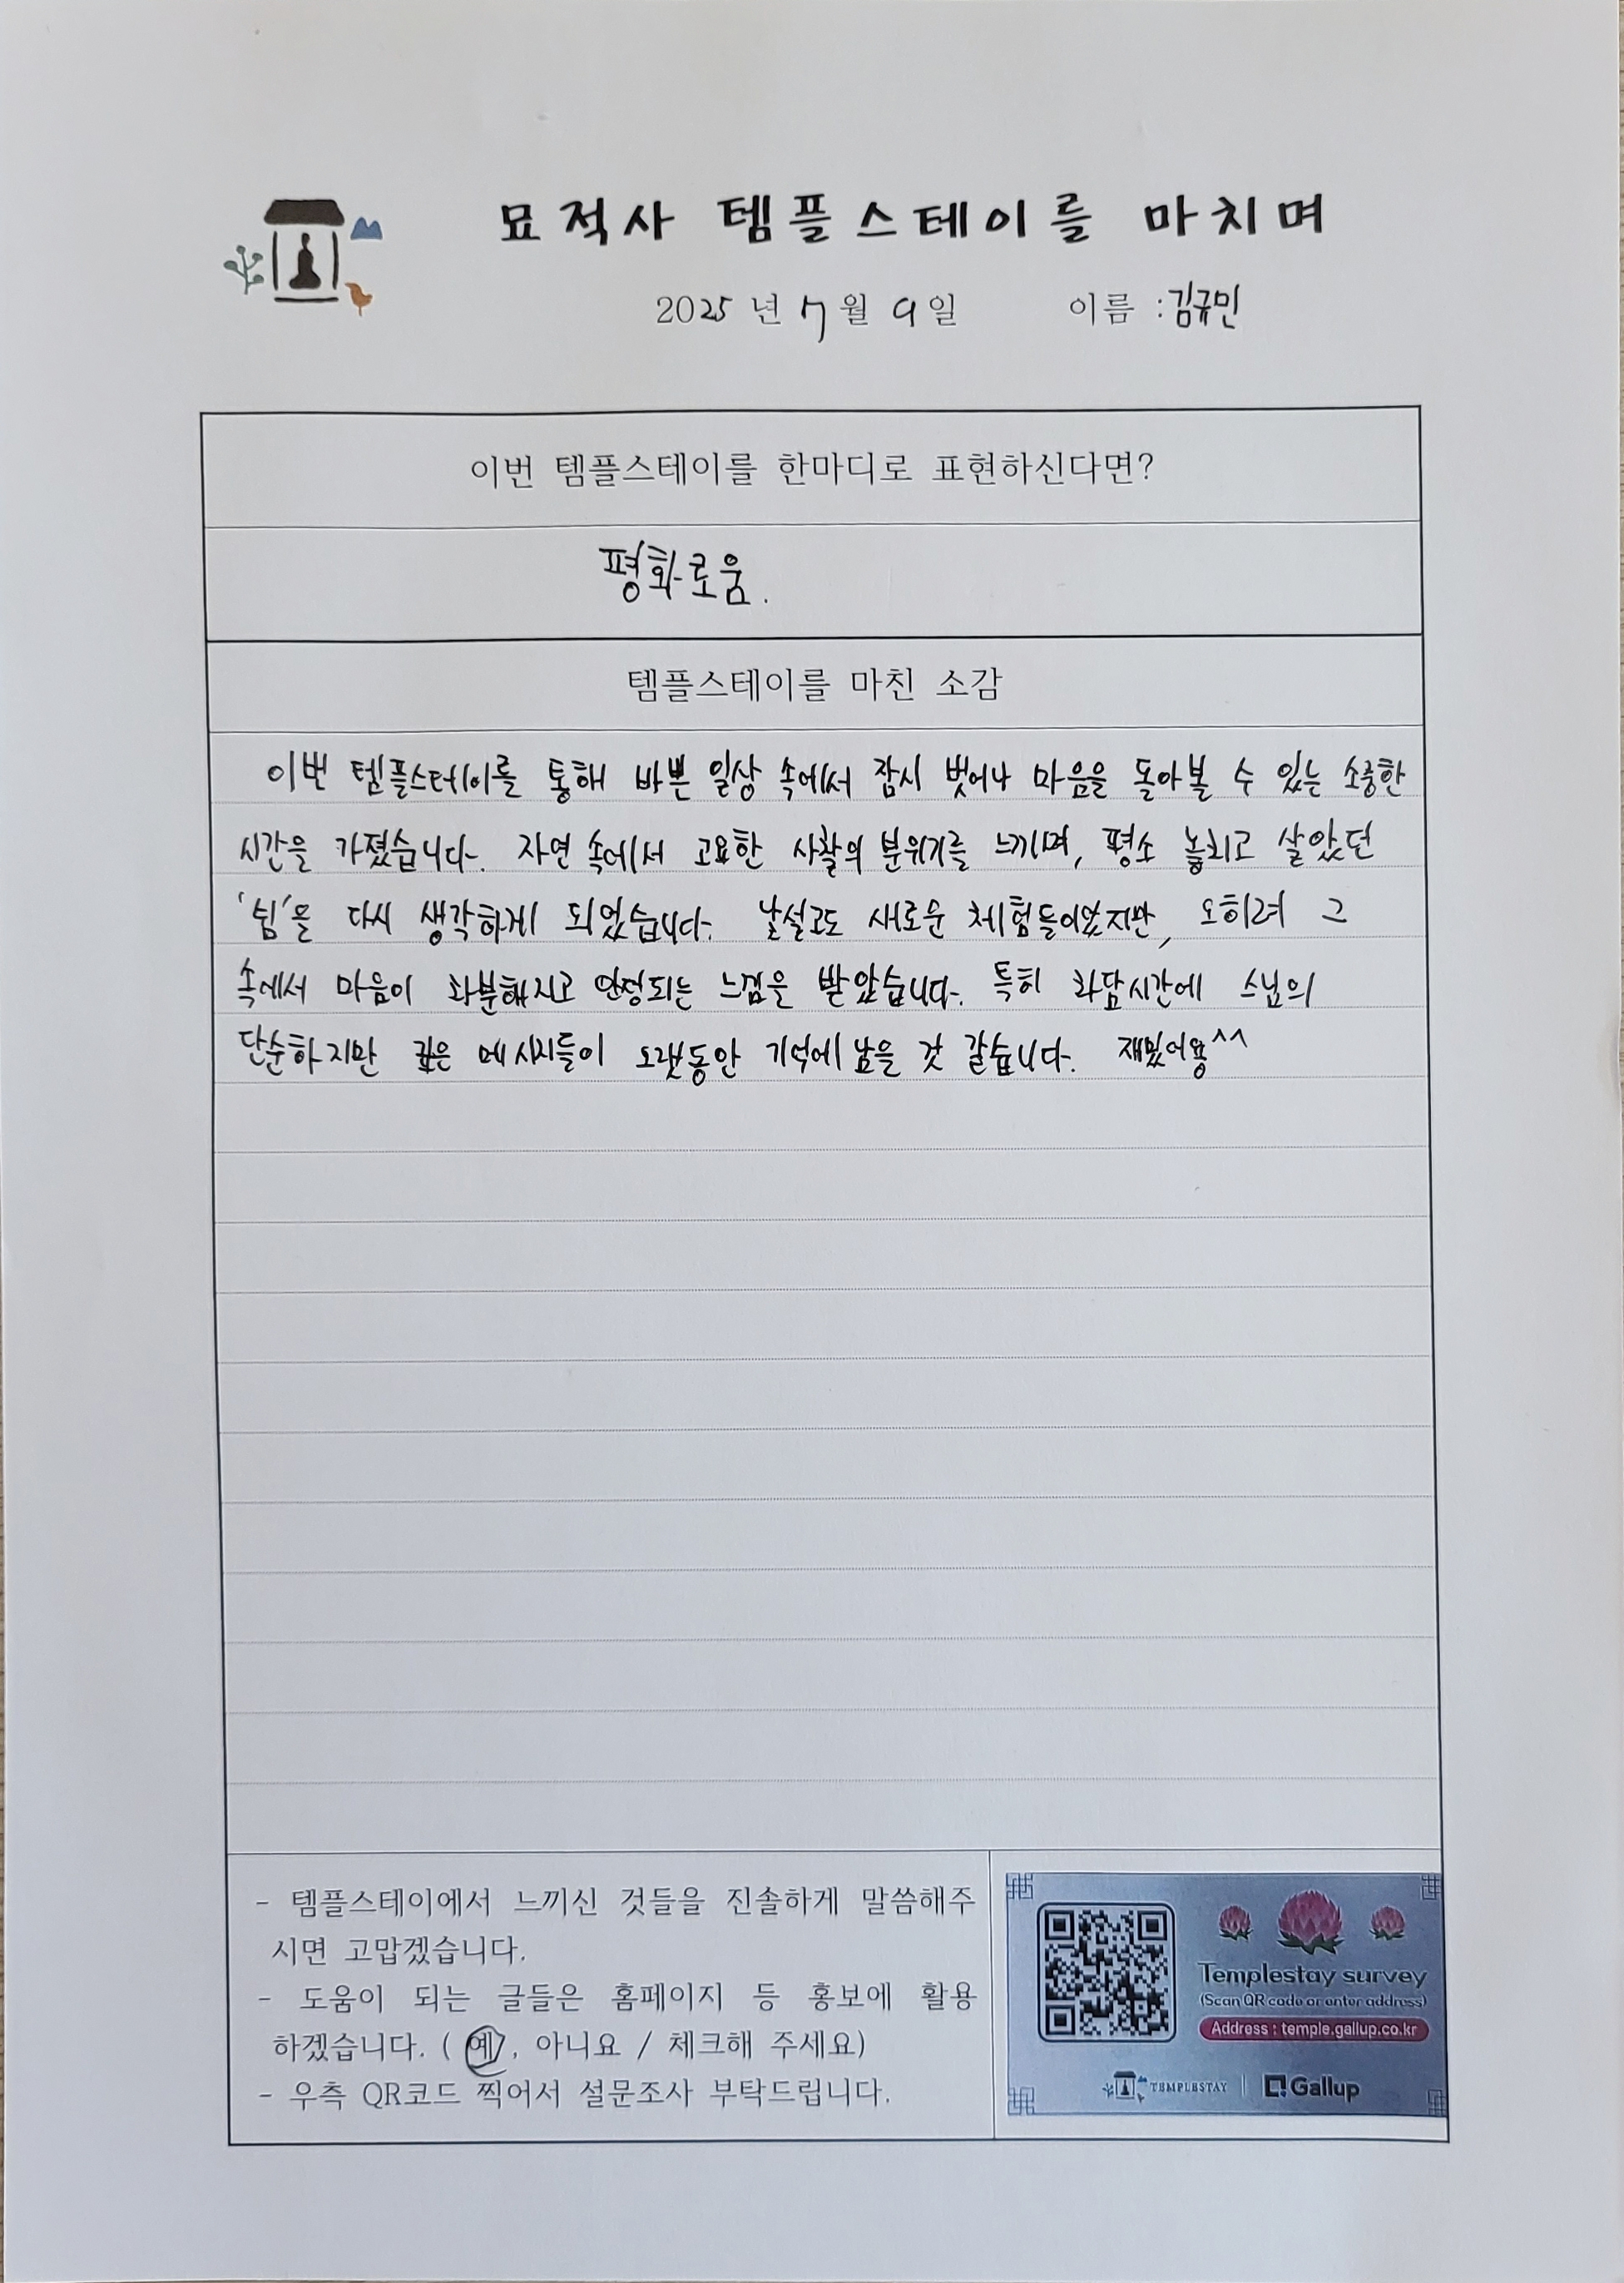 묘적사 템플스테이를 마치며
2025 년 7 월 9 일 이름 : 김규민
이번 템플스테이를 한마디로 표현하신다면?
평화로움.
템플스테이를 마친 소감
이번 템플스테이를 통해 바쁜 일상 속에서 잠시 벗어나 마음을 돌아볼 수 있는 소중한
시간을 가졌습니다. 자연 속에서 고요한 사찰의 분위기를 느끼며, 평소 놓치고 살았던
'쉼'을 다시 생각하게 되었습니다. 낯설고도 새로운 체험들이었지만, 오히려 그
속에서 마음이 차분해지고 안정되는 느낌을 받았습니다. 특히 차담시간에 스님의
단순하지만 깊은 메시지들이 오랫동안 기억에 남을 것 같습니다. 재밌어용^^
- 템플스테이에서 느끼신 것들을 진솔하게 말씀해주
시면 고맙겠습니다.
- 도움이 되는 글들은 홈페이지 등 홍보에 활용
하겠습니다. ( 예, 아니요 / 체크해 주세요)
- 우측 QR코드 찍어서 설문조사 부탁드립니다.
Templestay survey
(Scan QR code or enter address)
Address : temple.gallup.co.kr
TEMPLESTAY | Gallup